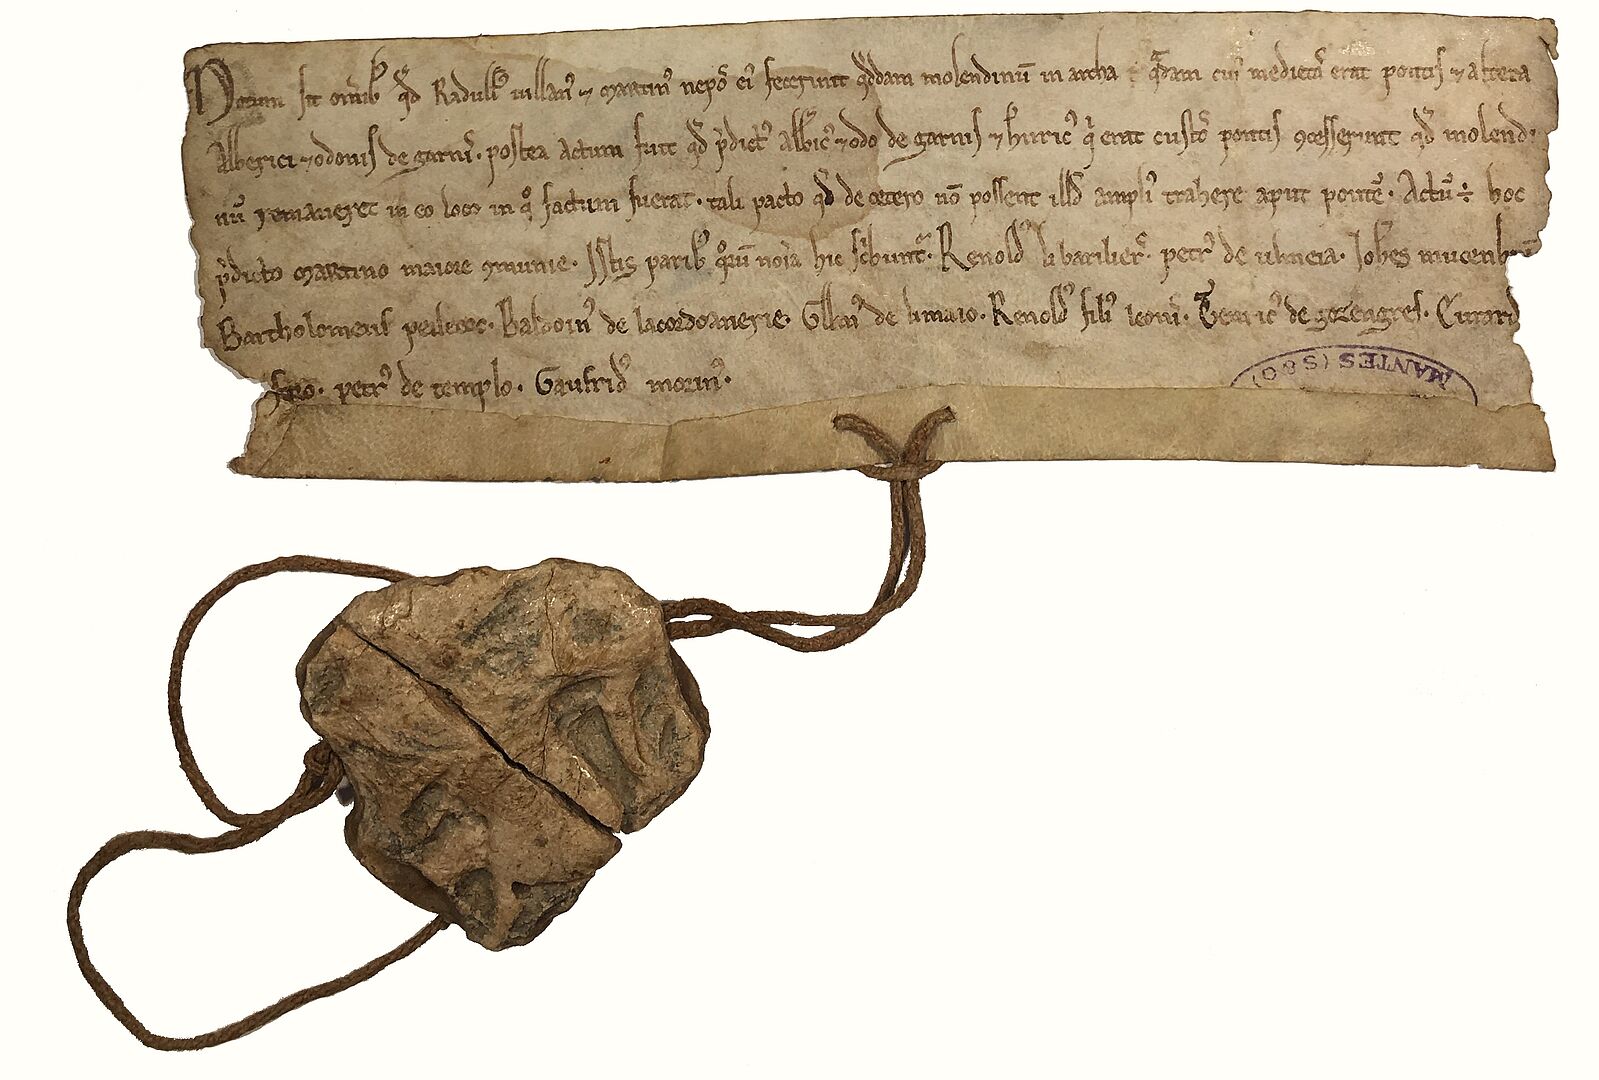 Notum sit omib' qd Radulf' villan' ⁊ martin' nepos ei' fecerunt qddam molendinū in archa qdam cui' medietas erat pontis ⁊ altera
Alberici ⁊ odonis de garn̄. postea actum fuit qd p̄dict' albic' ⁊ odo de garnis ⁊ henric' q̄ erat custos pontis ɔcesserunt qd molend
nū remaneret in eo loco in q̊ factum fuerat. tali pacto qd de cetero nō possent illd ampli' trahere aput pontē. Actū ÷ hoc
p̄dicto martino maiore ɔmunie. Istis parib' quoꝝ noīa hic scbunt̄. Renold' li barilier. petr' de
Bartholomeus Baldoin' de lacordoanerie. Gllm' de limaio. Renold' fili' leon̄. Terric' de gozengres. Girard'
petr' de templo. Gaufrid' morin'.
MANTES (S&O)